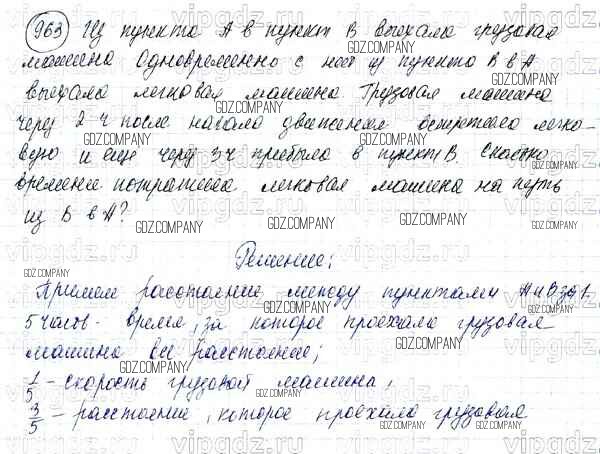 963 Из пункта А в пункт В выехала грузовая
машина одновременно с ней из пункта В в А
выехала легковая машина. Грузовая машина
через 2 ч после начала движения встретила легко-
вую и еще через 3 ч прибыла в пункт В. Сколько
времени потратила легковая машина на путь
из В в А?
Решение:
Примем расстояние между пунктами А и В за 1.
5 часов - время, за которое проехала грузовая
машина все расстояние;
1/5 - скорость грузовой машины,
3/5 - расстояние, которое проехала грузовая